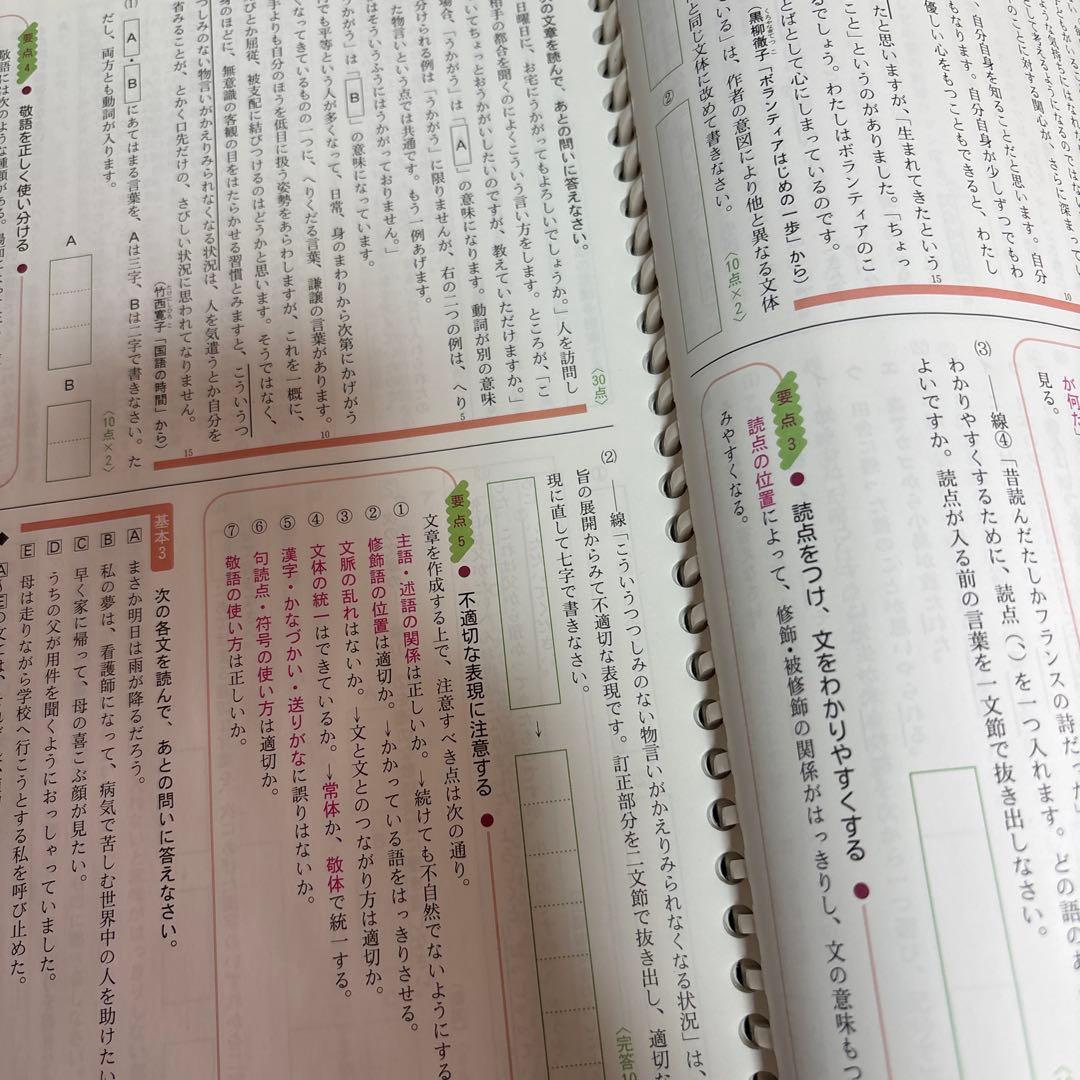 た と思いますが、「生まれてきたという
こと」というのがありました。「ちょっ
でしょう。わたしはボランティアのこ
とばとして心にしまっているのです。
（黒柳徹子「ボランティアはじめの一歩」から）
ている」は、作者の意図により他と異なる文体
と同じ文体に改めて書きなさい。
〈10点×2〉
②
15
10
が何だ
見る。
(3) ――線④「昔読んだたしかフランスの詩だっ
わかりやすくするために、読点（、）を一つ入れます。どの語のあ
よいですか。読点が入る前の言葉を一文節で抜き出しなさい。
要点3
読点をつけ、文をわかりやすくする
読点の位置によって、修飾・被修飾の関係がはっきりし、文の意味もつ
みやすくなる。
次の文章を読んで、あとの問いに答えなさい。
〈30点〉
日曜日に、お宅にうかがってもよろしいでしょうか。」人を訪問し
相手の都合を聞くのによくこういう言い方をします。ところが、「こ
いてちょっとおうかがいしたいのですが、教えていただけますか。」
場合、「うかがう」は A の意味になります。動詞が別の意味
分けられる例は「うかがう」に限りませんが、右の二つの例は、へり
た物言いという点では共通です。もう一例あげます。
はそういうふうにはうかがっておりません。」
かがう」は B の意味になっています。
でも平等という人が多くなって、日常、身のまわりから次第にかげがう
くなってきているものの一つに、へりくだる言葉、謙譲の言葉があります。
手よりも自分のほうを低目に扱う姿勢をあらわしますが、これを一概に、
びとか屈従、被支配に結びつけるのはどうかと思います。そうではなく、
身のほどに、無意識の客観の目をはたらかせる習慣とみますと、こういうつ
つしみのない物言いがかえりみられなくなる状況は、人を気遣うとか自分を
省みることが、とかく口先だけの、さびしい状況に思われてなりません。
（竹西寛子「国語の時間」から）
5
10
15
(1) A・B にあてはまる言葉を、Aは三字、Bは二字で書きなさい。た
だし、両方とも動詞が入ります。
〈10点×2〉
A
B
要点4
敬語を正しく使い分ける
敬語には次のような種類がある。
(2) ――線「こういうつつしみのない物言いがかえりみられなくなる状況」は、
旨の展開からみて不適切な表現です。訂正部分を二文節で抜き出し、適切な
現に直して七字で書きなさい。
〈完答10
↓
要点5
不適切な表現に注意する
文章を作成する上で、注意すべき点は次の通り。
① 主語・述語の関係は正しいか。→続けても不自然でないようにする
② 修飾語の位置は適切か。→かかっている語をはっきりさせる。
③ 文脈の乱れはないか。→文と文とのつながり方は適切か。
④ 文体の統一はできているか。→常体か、敬体で統一する。
⑤ 漢字・かなづかい・送りがなに誤りはないか。
⑥ 句読点・符号の使い方は適切か。
⑦ 敬語の使い方は正しいか。
基本3
次の各文を読んで、あとの問いに答えなさい。
A まさか明日は雨が降るだろう。
B 私の夢は、看護師になって、病気で苦しむ世界中の人を助けたい
C 早く家に帰って、母の喜こぶ顔が見たい。
D うちの父が用件を聞くようにおっしゃっていました。
E 母は走りながら学校へ行こうとする私を呼び止めた。